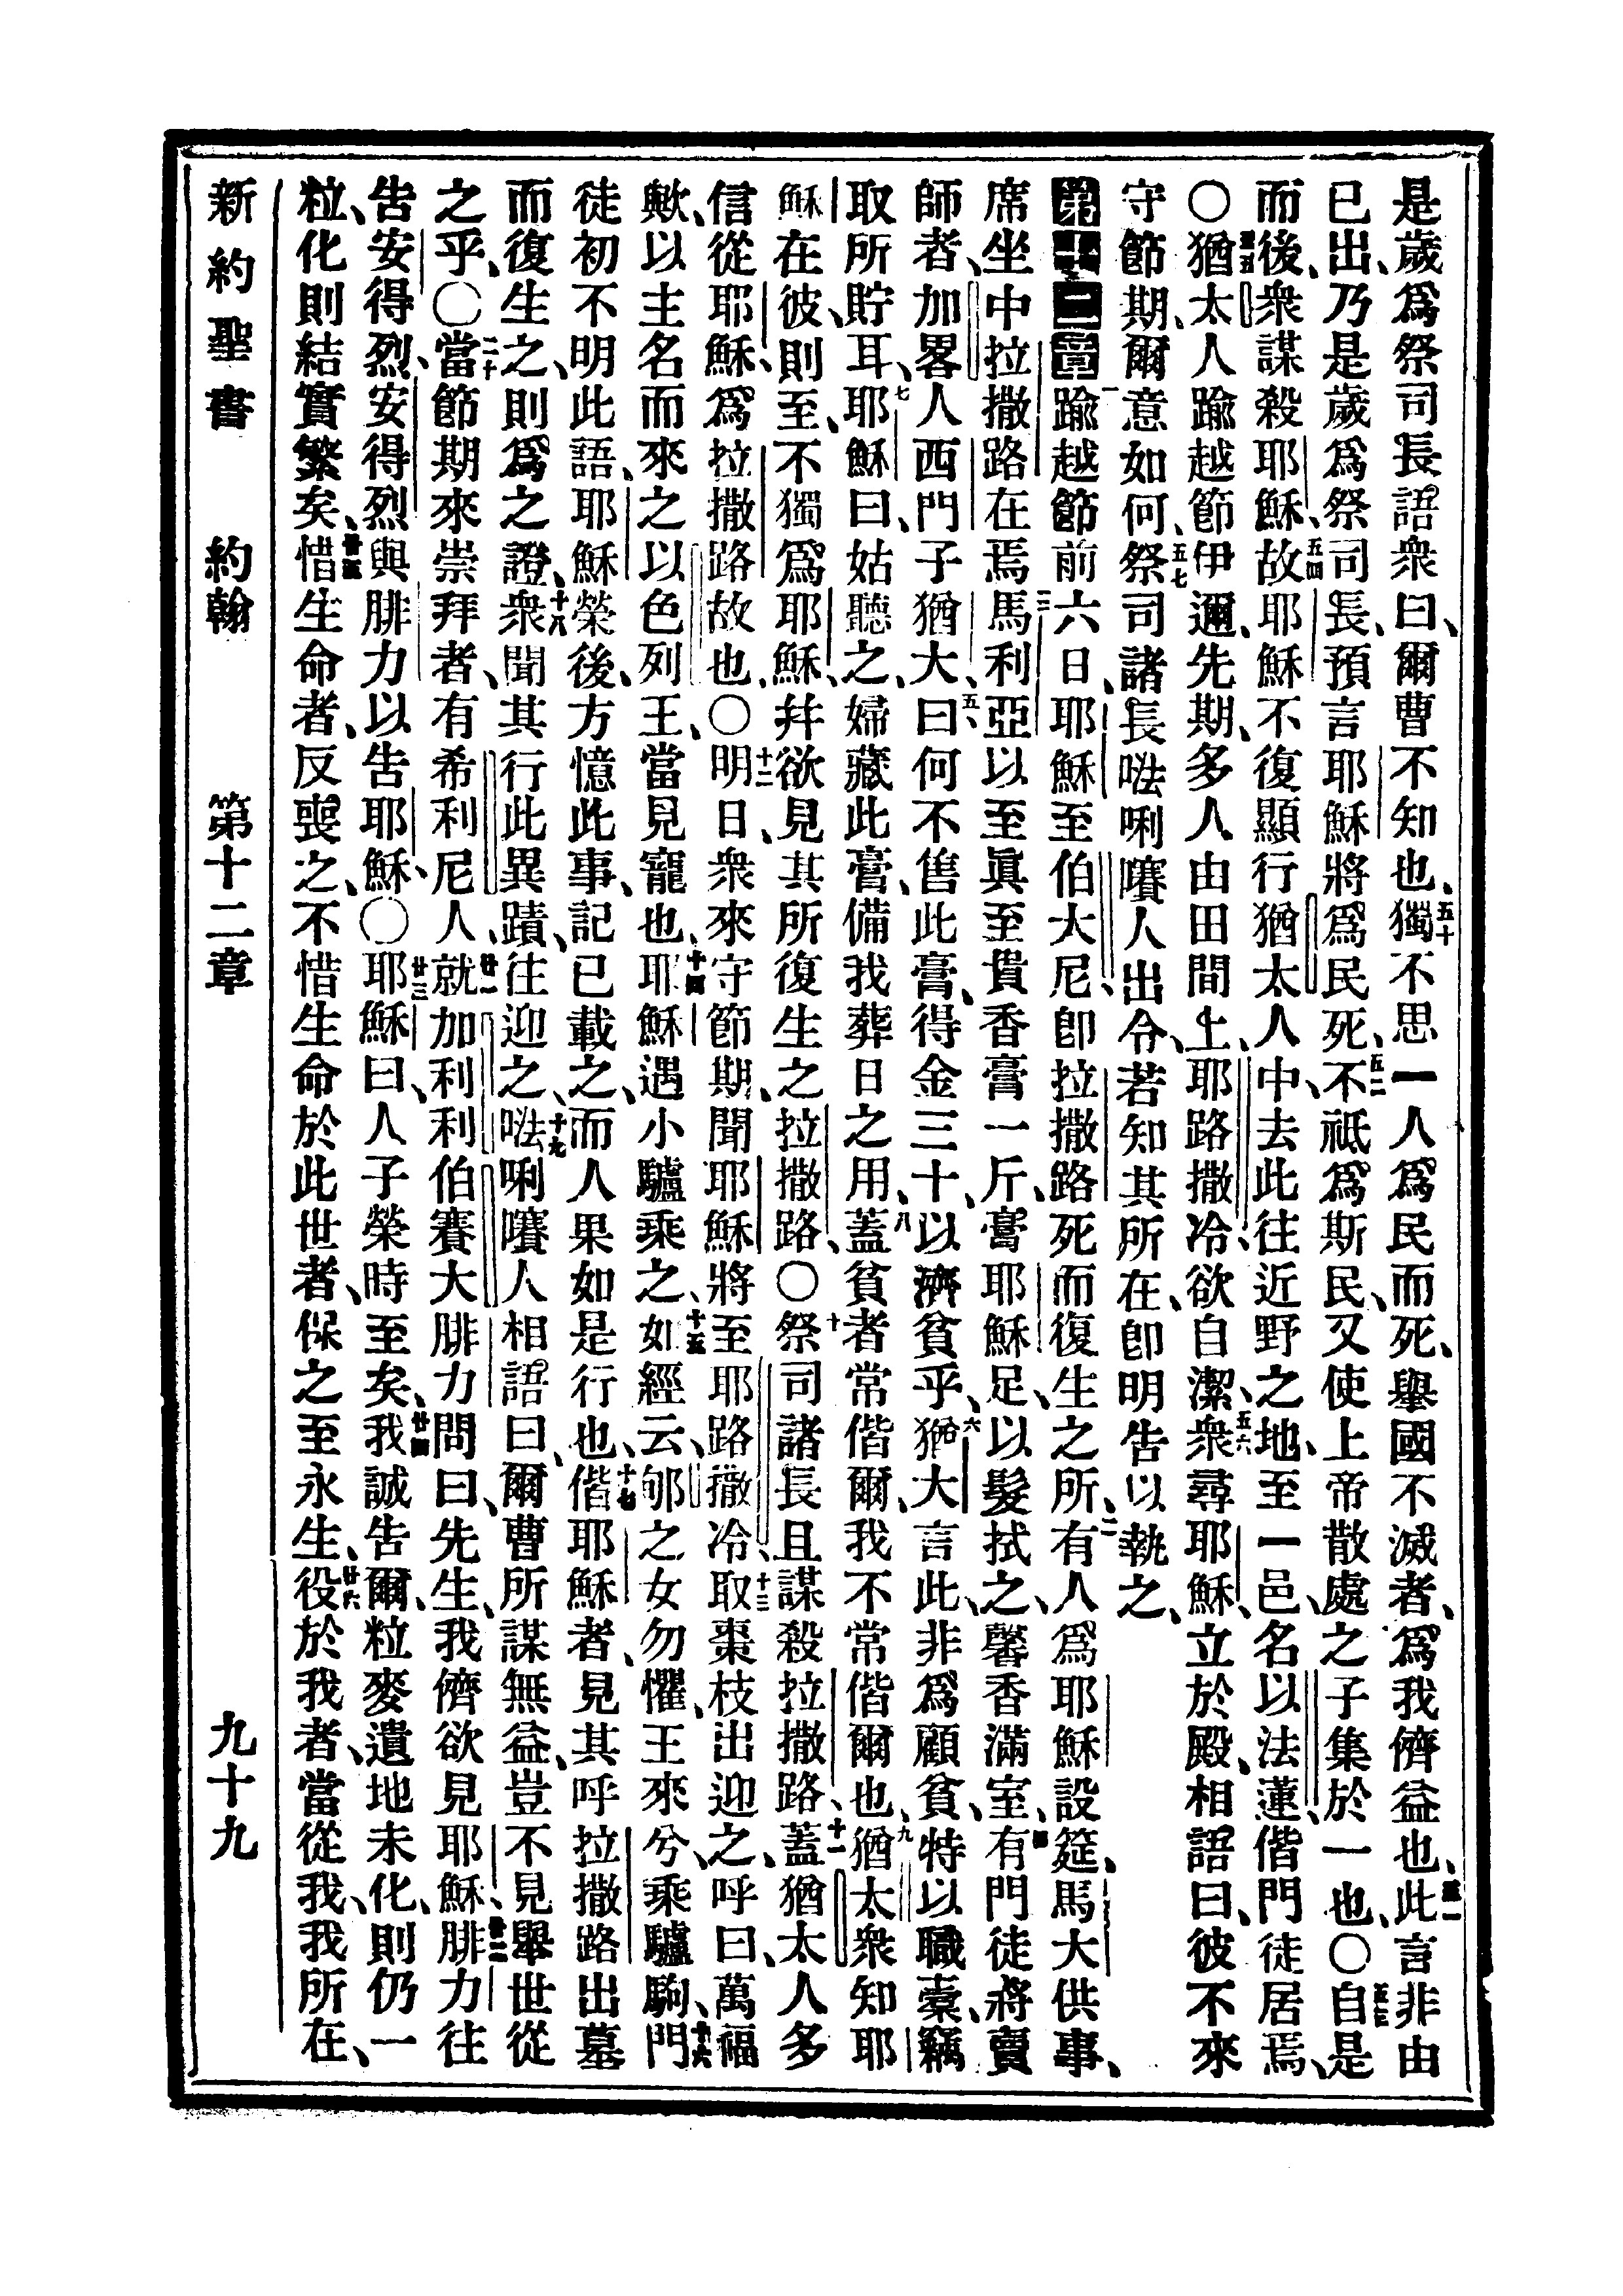 是歲爲祭司長語衆曰、爾曹不知也、五十獨不思一人爲民而死、舉國不滅者、爲我儕益也、五一此言非由
已出、乃是歲爲祭司長、預言耶穌將爲民死、五二不祗爲斯民、又使上帝散處之子集於一也、〇五三自是
而後、衆謀殺耶穌、五四故耶穌不復顯行猶太人中、去此往近野之地、至一邑、名以法蓮、偕門徒居焉、
〇五五猶太人踰越節伊邇、先期、多人由田間上耶路撒冷、欲自潔、五六衆尋耶穌、立於殿、相語曰、彼不來
守節期、爾意如何、五七祭司諸長𠵽唎㘔人出令、若知其所在、卽明告以執之、
第十二章一踰越節前六日、耶穌至伯大尼、卽拉撒路死而復生之所、二有人爲耶穌設筵、馬大供事、
席坐中拉撒路在焉、三馬利亞以至眞至貴香膏一斤、膏耶穌足、以髮拭之、馨香滿室、四有門徒將賣
師者、加畧人西門子猶大、五曰、何不售此膏、得金三十、以濟貧乎、六猶大言此、非爲顧貧、特以職橐、竊
取所貯耳、七耶穌曰、姑聽之、婦藏此膏、備我葬日之用、八蓋貧者常偕爾、我不常偕爾也、九猶太衆知耶
穌在彼、則至、不獨爲耶穌、幷欲見其所復生之拉撒路、〇十祭司諸長且謀殺拉撒路、十一蓋猶太人多
信從耶穌、爲拉撒路故也、〇十二明日、衆來守節期、聞耶穌將至耶路撒冷、十三取棗枝出迎之、呼曰、萬福
歟、以主名而來之以色列王、當見寵也、十四耶穌遇小驢乘之、十五如經云、郇之女勿懼、王來兮、乘驢駒、十六門
徒初不明此語、耶穌榮後、方憶此事、記已載之、而人果如是行也、十七偕耶穌者、見其呼拉撒路出墓
而復生之、則爲之證、十八衆聞其行此異蹟、往迎之、十九𠵽唎㘔人相語曰、爾曹所謀無益、豈不見舉世從
之乎、〇二十當節期來崇拜者、有希利尼人、廿一就加利利伯賽大腓力問曰、先生、我儕欲見耶穌、廿二腓力往
告安得烈、安得烈與腓力以告耶穌、〇廿三耶穌曰、人子榮時至矣、廿四我誠告爾、粒麥遺地未化、則仍一
粒、化則結實繁矣、廿五惜生命者、反喪之、不惜生命於此世者、保之至永生、廿六役於我者、當從我、我所在、
新約聖書　約翰　第十二章　九十九